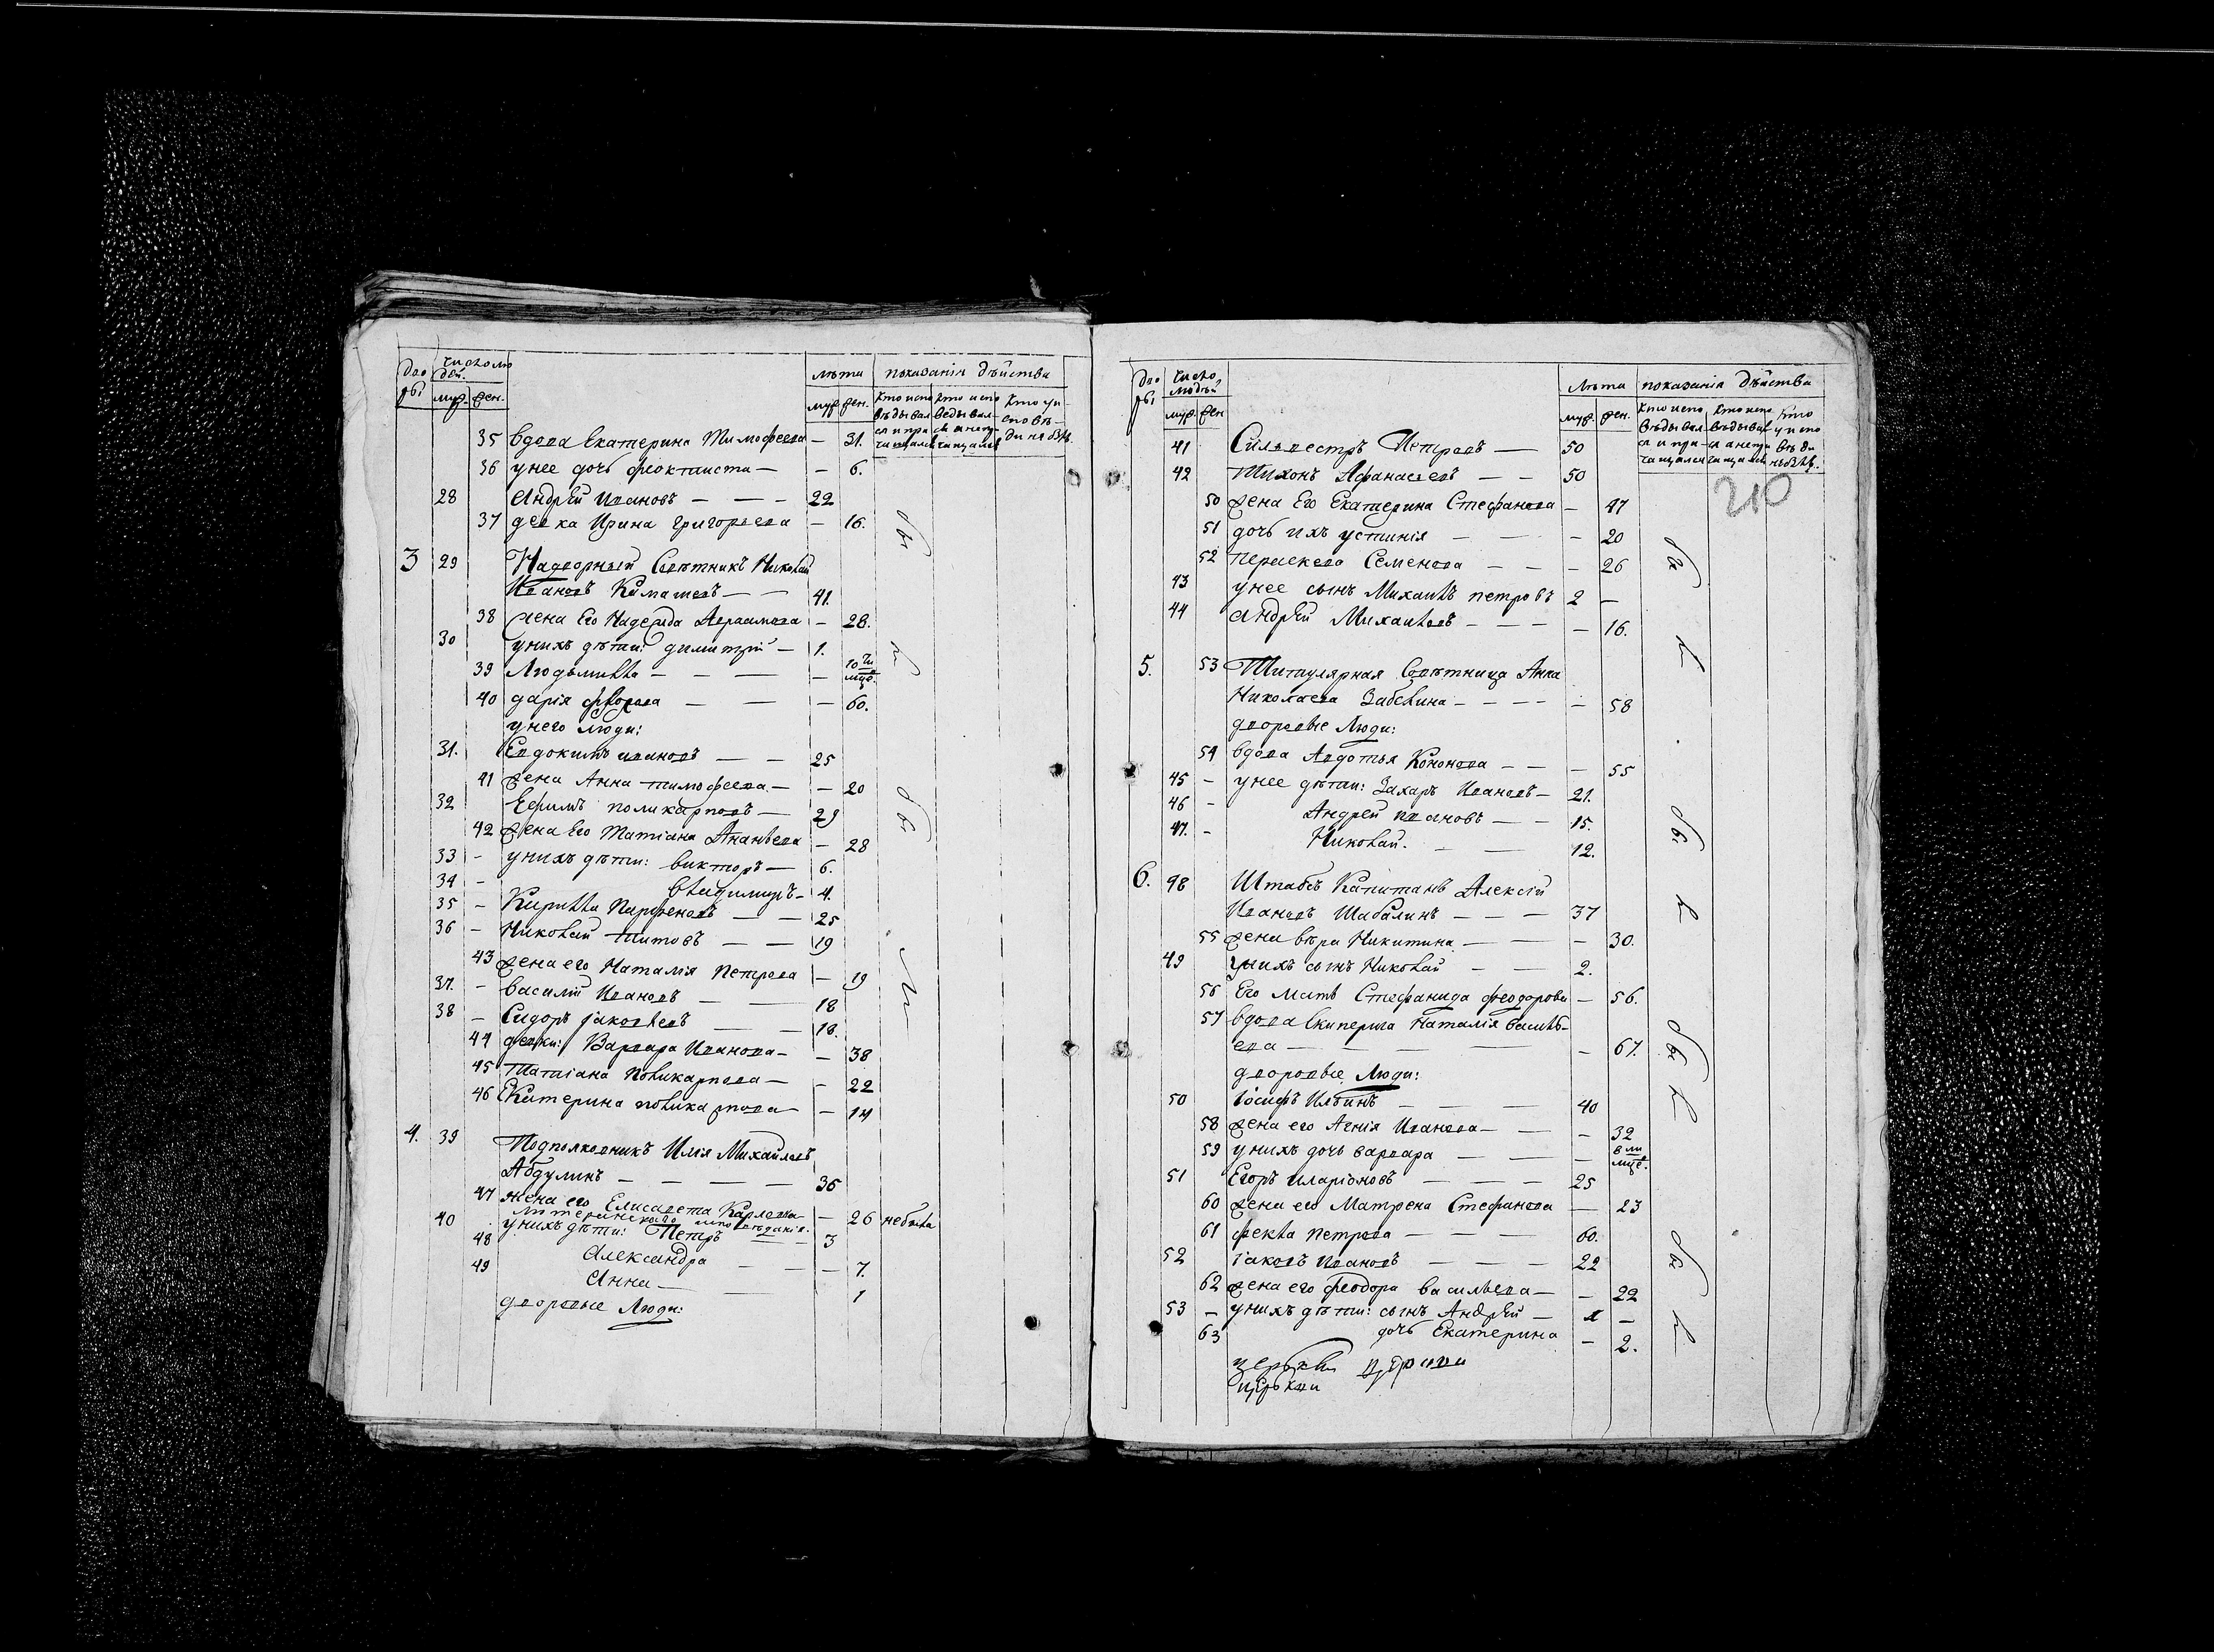 Дво ры
Число лю дей.
муж. жен.
лѣта
муж. жен.
показанія дѣйства
Кто испо вѣдывал ся и при чащался
Кто испо ведывал ся а непри чащался
Кто у испо вѣ ди не былъ
35 вдова Екатерина Тимофеева — 31.
36 у нее дочь феоктиста — — 6.
28 Андрей Ивановъ — — — 22
37 девка Ирина Григорьева — 16.
3 29 Надворный Совѣтникъ Николай
Ивановъ — — 41.
38 жена Его Надежда Авраамова — 28.
30 у нихъ дѣти: димитрій — 1.
39 Людьмилла — — — — 10 ти мцѣ.
40 дарія — — — 60.
у него люди:
31. Евдокимъ ивановъ — — 25
41 жена Анна тимофеева — — 20
32 Ефимъ поликарповъ — 29
42 жена Его Татіана Ананьева — 28
33 - у нихъ дѣти: викторъ — 6.
34 - владимиръ — 4.
35 - Кирилла Парфеновъ — — 25
36 - Николай Титовъ — — 19
43 жена его Наталія Петрова — 19
37. - василій Ивановъ — — 18
38 - Сидоръ јаковлевъ — — 18.
44 девки: Варвара Иванова — — 38
45 Татіана Поликарпова — — 22
46 Екатерина поликарпова — — 14
4. 39 Подполковникъ Илія Михайловъ
Абдулинъ — — — — 36
47 жена его Елисавета Карловна — 26 небыла
лютеранскаго исповѣданія.
40 у нихъ дѣти: Петръ — 3
48 Александра — — — 7.
49 Анна — — 1
дворовые Люди:
Дво ры
Число людѣй
муж. жен
Лѣта
муж. жен.
показанія дѣйства
Кто испо вѣдывал ся и при чащался
Кто испо вѣдывал ся а непри чащался
кто у испо вѣди небылъ.
210
41 Сильвестръ Петровъ — 50
42 Тихонъ Афанасьевъ — — 50
50 жена Его Екатерина Стефанова — 47
51 дочь ихъ устинія — — — 20
52 Семенова — — — 26
43 у нее сынъ Михаилъ петровъ 2 —
44 Андрей Михаиловъ — — — — 16.
5. 53 Титулярная Совѣтница Анна
Николаева Забелина — — — — — 58
дворовые Люди:
54 вдова Авдотья Кононова — — — 55
45 - у нее дѣти: Захаръ Ивановъ — 21.
46 - Андрей Ивановъ — — 15.
47. - Николай. — — 12.
6. 48 Штабсъ Капитанъ Алексій
Ивановъ Шабалинъ — — — 37
55 жена вѣра Никитина — — — 30.
49 у нихъ сынъ Николай — — 2.
56 Его мать Стефанида феодорова — 56.
57 вдова Наталія василь-
ева — — — — — 67.
дворовые Люди:
50 Іосифъ Ильинъ — — — 40
58 жена его Агнія Иванова — — — 32
59 у нихъ дочь варвара — — — 8 ми мцѣ.
51 Егоръ иларіоновъ — — — 25
60 жена его Матрена Стефанова — 23
61 фекла петрова — — — 60.
52 іаковъ Ивановъ — — — 22
62 жена его феодора васильева — — 22
53 - у нихъ дѣти: сынъ Андрей — 1 —
63 дочь Екатерина — 2.